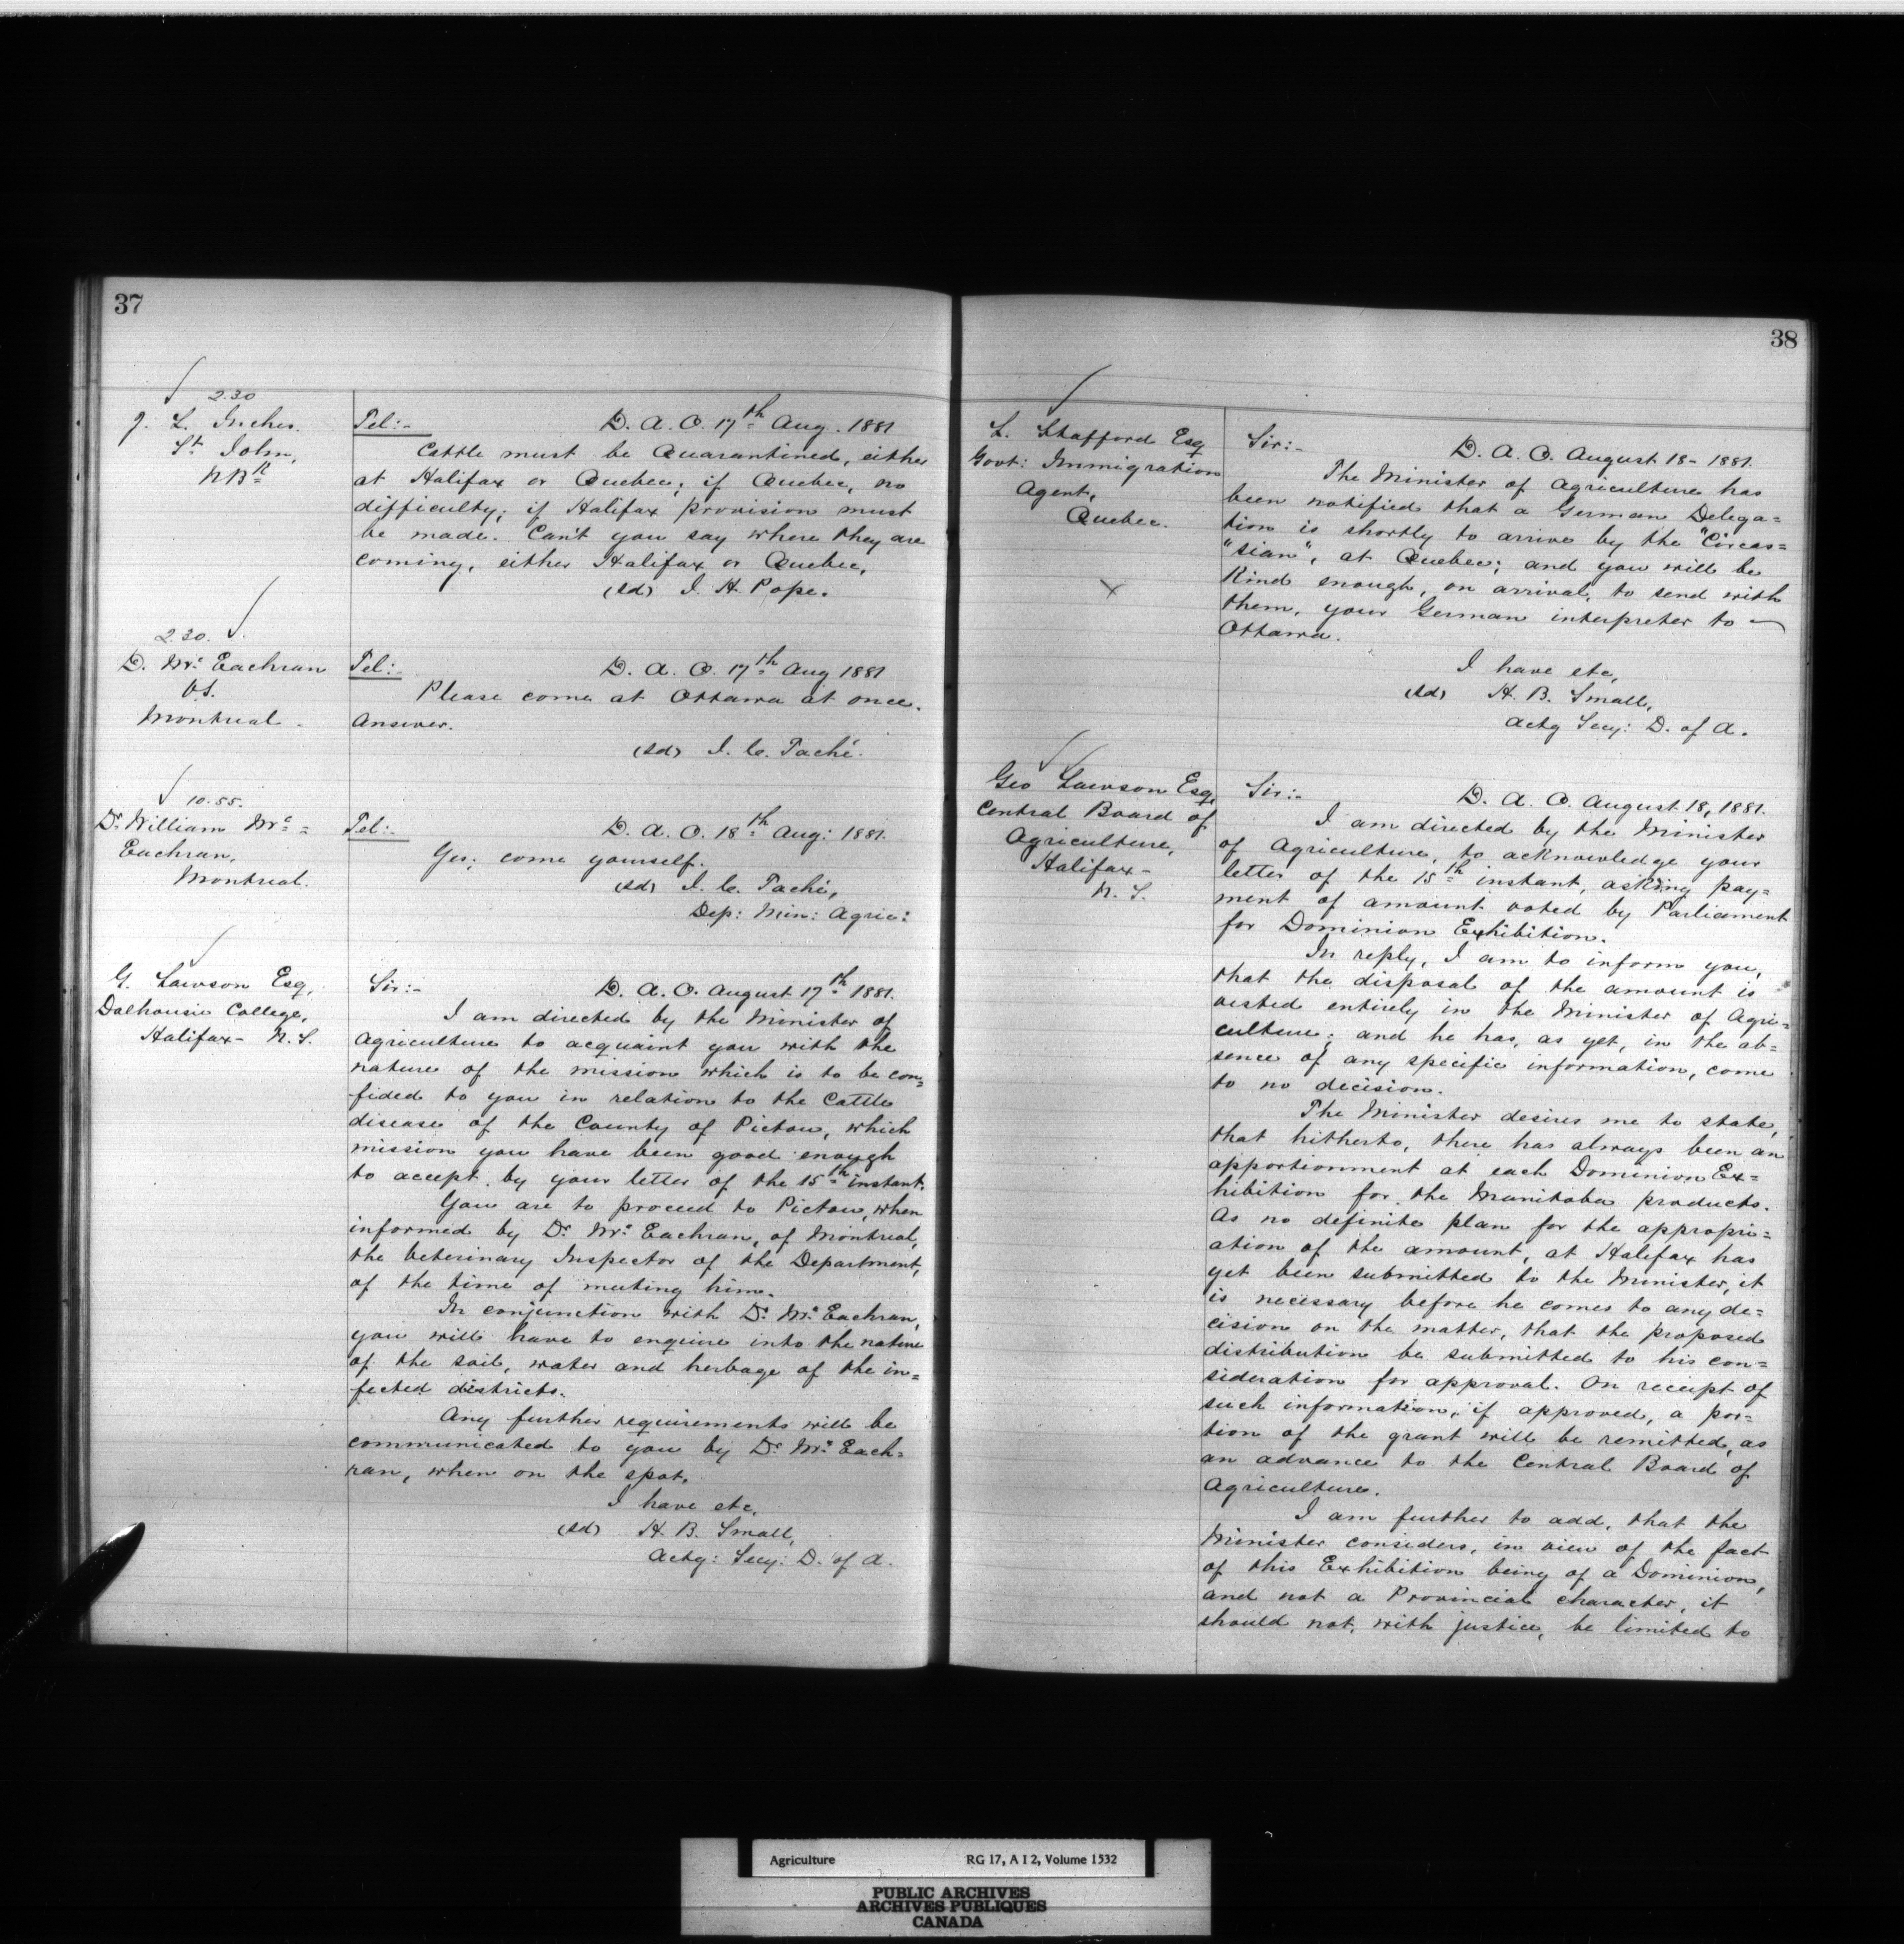 37
2.30
J. L. Inches.
St. John,
N Bk
Tel:-
D. A. O. 17th Aug. 1881
Cattle must be Quarantined, either
at Halifax or Quebec; if Quebec, no
difficulty; if Halifax provision must
be made. Can't you say where they are
coming, either Halifax or Quebec,
(sd) J. H. Pope.
2.30.
D. Mc. Eachran
V.S.
Montreal.
Tel:-
D. A. O. 17th Aug 1881
Please come at Ottawa at once.
Answer.
(sd) J. C. Taché.
10.55.
Dr. William Mc=
Eachran,
Montreal.
Tel:-
D. A. O. 18th Aug: 1881.
Yes; come yourself.
(sd) J. C. Taché,
Dep: Min: Agric:
G. Lawson Esq,
Dalhousie College,
Halifax - N. S.
Sir:-
D. A. O. August 17th 1881.
I am directed by the Minister of
Agriculture to acquaint you with the
nature of the mission which is to be con=
fided to you in relation to the Cattle
disease of the County of Pictou, which
mission you have been good enough
to accept by your letter of the 15th instant.
You are to proceed to Pictou, when
informed by Dr. Mc. Eachran, of Montreal,
the Veterinary Inspector of the Department,
of the time of meeting him.
In conjunction with Dr. Mc. Eachran,
you will have to enquire into the nature
of the soil, water and herbage of the in=
fected districts.
Any further requirements will be
communicated to you by Dr. Mc. Each=
ran, when on the spot.
I have etc,
(sd) H. B. Small,
Actg: Secy: D. of A.
38
L. Stafford Esq
Govt: Immigration
Agent,
Quebec.
Sir:-
D. A. O. August 18 - 1881.
The Minister of Agriculture has
been notified that a German Delega=
tion is shortly to arrive by the "Circas=
"sian", at Quebec; and you will be
kind enough, on arrival, to send with
them, your German interpreter to
Ottawa.
I have etc,
(sd) H. B. Small,
Actg Secy: D. of A.
Geo Lawson Esq,
Central Board of
Agriculture,
Halifax -
N. S.
Sir:-
D. A. O. August 18, 1881.
I am directed by the Minister
of Agriculture, to acknowledge your
letter of the 15th instant, asking pay=
ment of amount voted by Parliament
for Dominion Exhibition.
In reply, I am to inform you,
that the disposal of the amount is
vested entirely in the Minister of Agri=
culture; and he has, as yet, in the ab=
sence of any specific information, come
to no decision.
The Minister desires me to state,
that hitherto, there has always been an
apportionment at each Dominion Ex=
hibition for the Manitoba products.
As no definite plan for the appropri=
ation of the amount, at Halifax has
yet been submitted to the Minister, it
is necessary before he comes to any de=
cision on the matter, that the proposed
distribution be submitted to his con=
sideration for approval. On receipt of
such information, if approved, a por=
tion of the grant will be remitted, as
an advance to the Central Board of
Agriculture.
I am further to add, that the
Minister considers, in view of the fact
of this Exhibition being of a Dominion,
and not a Provincial character, it
should not, with justice, be limited to
Agriculture RG 17, A I 2, Volume 1532
PUBLIC ARCHIVES
ARCHIVES PUBLIQUES
CANADA